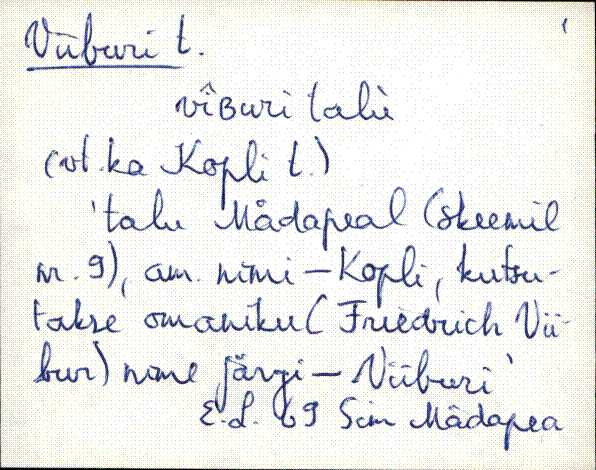 Viiburi t.
vîʙuri talù
(vt. ka Kopli t.)
'talu Mädapeal (skeemil
nr. 9), am. nimi – Kopli, kutsu-
takse omaniku (Friedrich Vii-
bur) nime järgi – Viiburi'
E.L. 69 Sim Mädapea